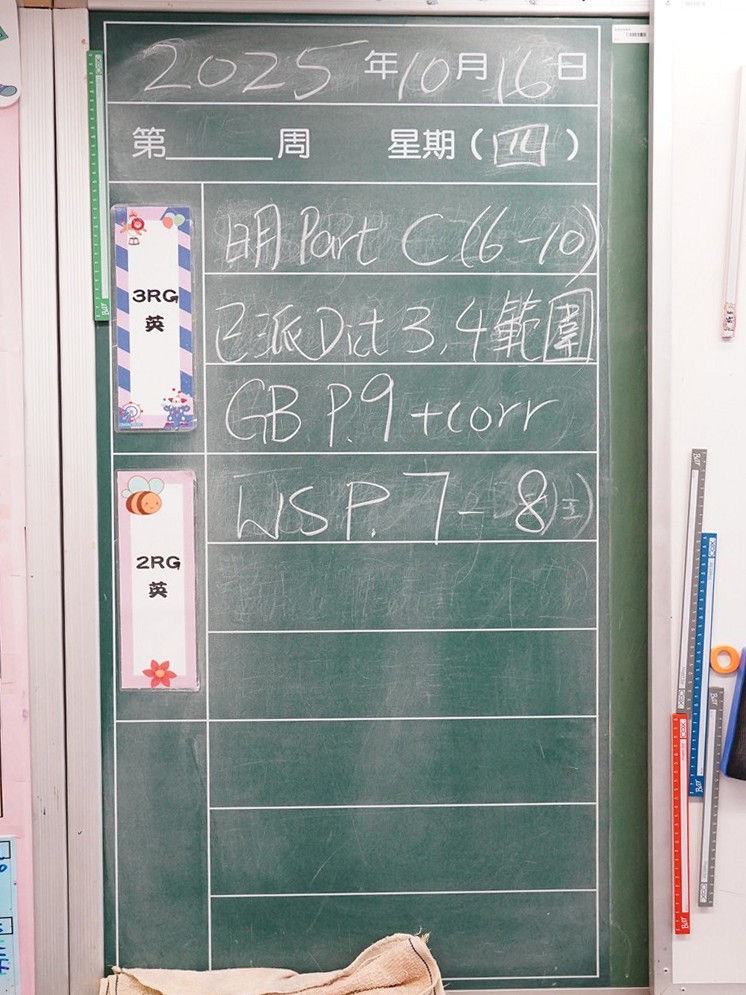 2025年10月16日
第____周 星期（四）
3RG
英
明 Part C (6-10)
已派 Dict 3,4 範圍
GB P.9 + corr
2RG
英
WS P. 7-8 (三)